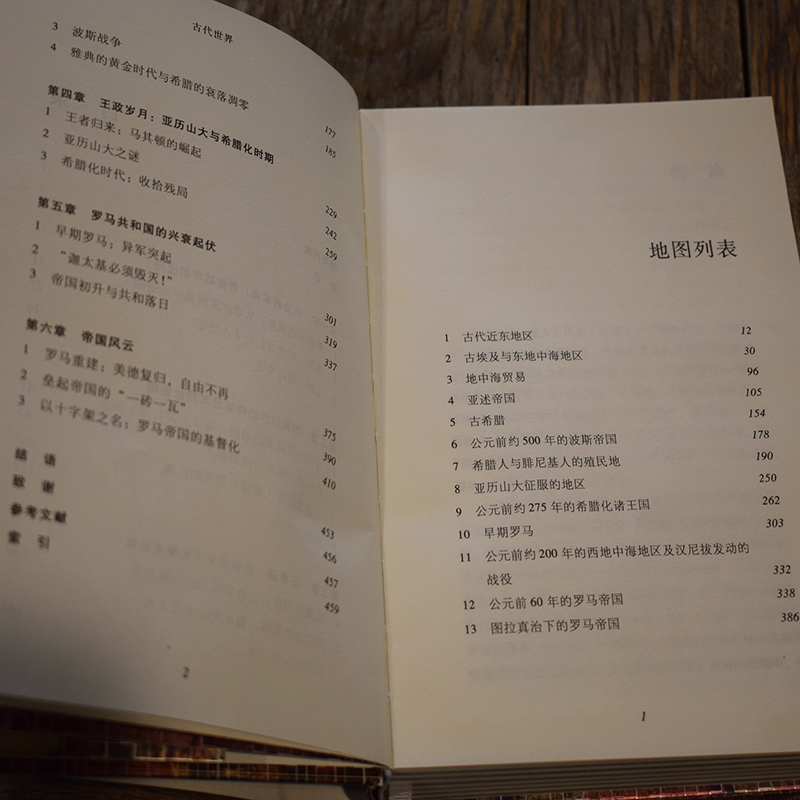 古代世界
3 波斯战争 177
4 雅典的黄金时代与希腊的衰落凋零 185
第四章 王政岁月：亚历山大与希腊化时期
1 王者归来：马其顿的崛起 229
2 亚历山大之谜 242
3 希腊化时代：收拾残局 259
第五章 罗马共和国的兴衰起伏
1 早期罗马：异军突起 301
2 “迦太基必须毁灭！” 319
3 帝国初升与共和落日 337
第六章 帝国风云
1 罗马重建：美德复归，自由不再 375
2 垒起帝国的“一砖一瓦” 390
3 以十字架之名：罗马帝国的基督化 410
结语 453
致谢 456
参考文献 457
索引 459
2
地图列表
1 古代近东地区 12
2 古埃及与东地中海地区 30
3 地中海贸易 96
4 亚述帝国 105
5 古希腊 154
6 公元前约500年的波斯帝国 178
7 希腊人与腓尼基人的殖民地 190
8 亚历山大征服的地区 250
9 公元前约275年的希腊化诸王国 262
10 早期罗马 303
11 公元前约200年的西地中海地区及汉尼拔发动的
战役 332
12 公元前60年的罗马帝国 338
13 图拉真治下的罗马帝国 386
1